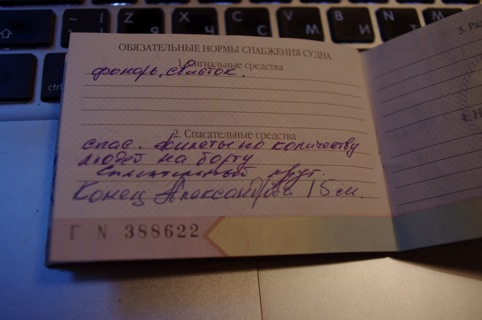 ОБЯЗАТЕЛЬНЫЕ НОРМЫ СНАБЖЕНИЯ СУДНА
1. Сигнальные средства
фонарь, свисток.
2. Спасательные средства
спас. жилеты по количеству
людей на борту
спасательный круг.
Конец Александрова 15 см.
Г N 388622
3. Ра